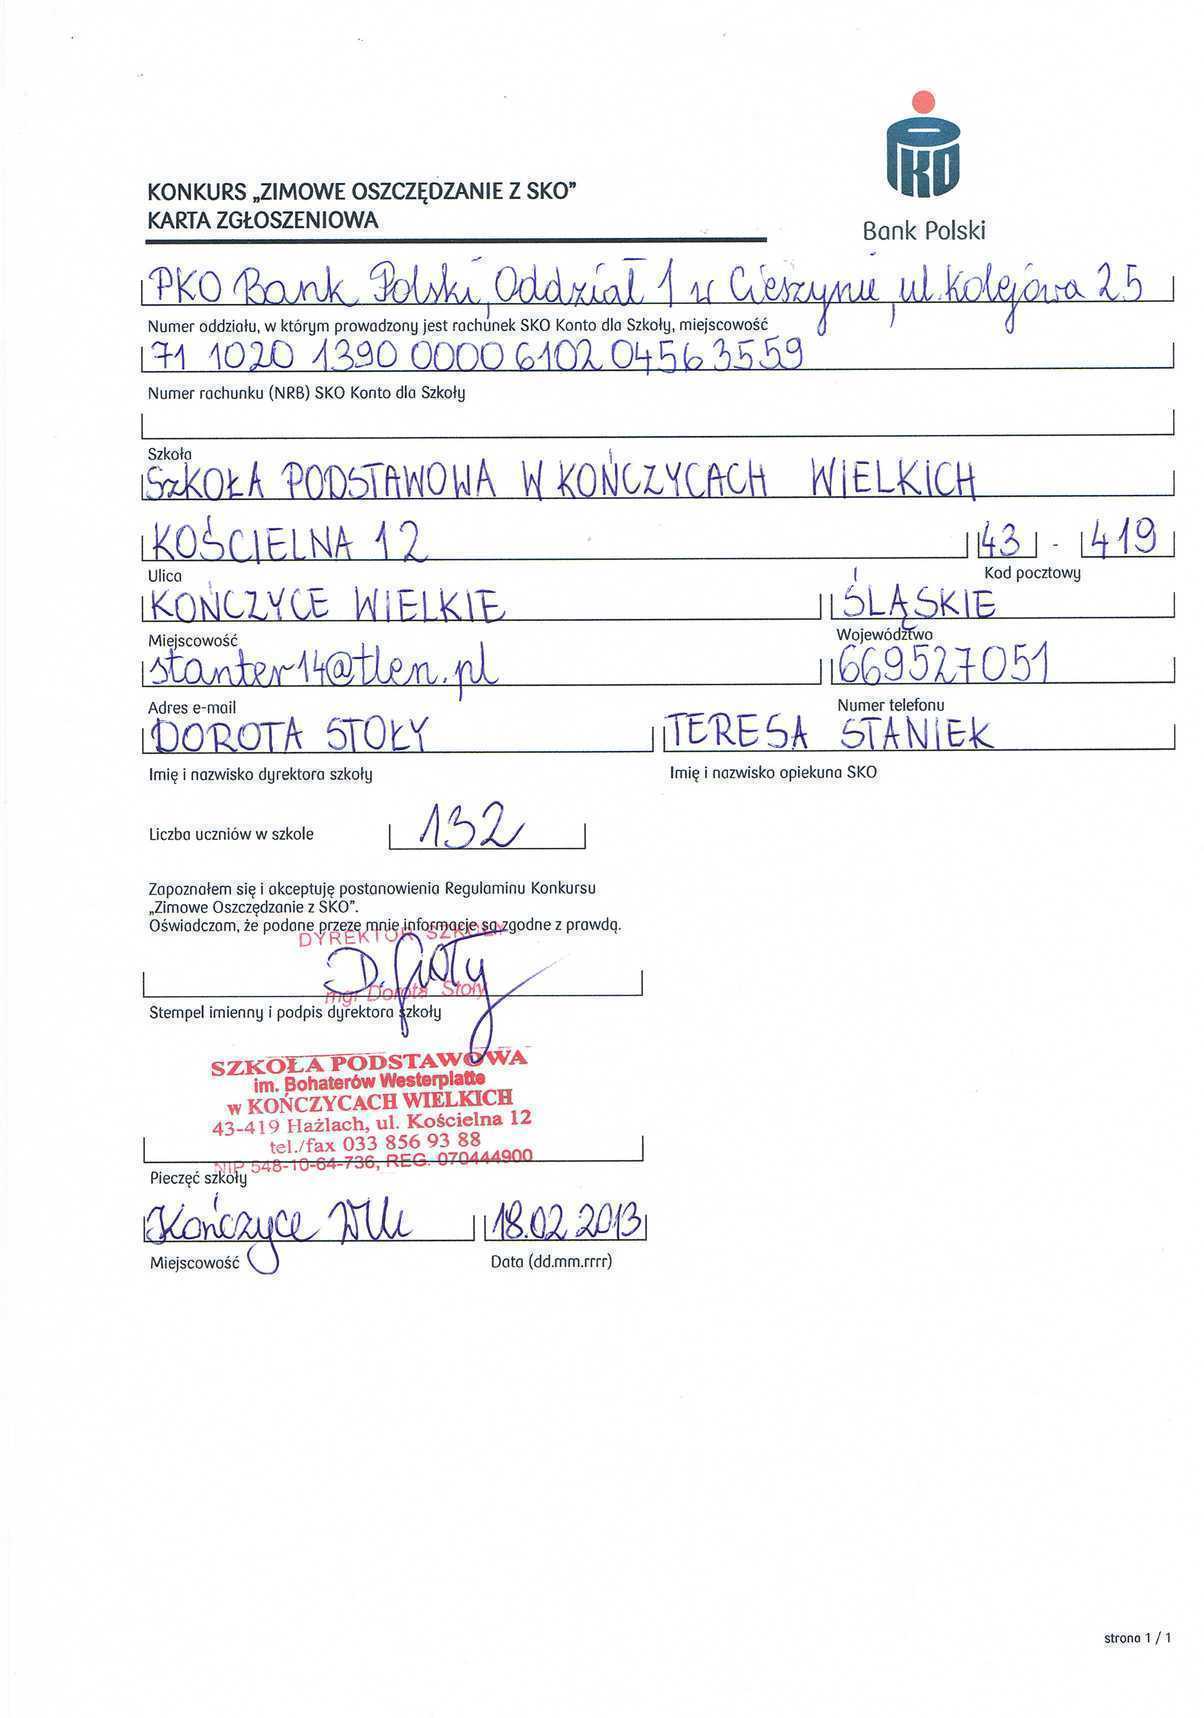 PKO
Bank Polski
KONKURS „ZIMOWE OSZCZĘDZANIE Z SKO”
KARTA ZGŁOSZENIOWA
PKO Bank Polski, Oddział 1 w Cieszynie, ul. Kolejowa 25
Numer oddziału, w którym prowadzony jest rachunek SKO Konto dla Szkoły, miejscowość
71 1020 1390 0000 6102 0456 3559
Numer rachunku (NRB) SKO Konto dla Szkoły
Szkoła
SZKOŁA PODSTAWOWA W KOŃCZYCACH WIELKICH
KOŚCIELNA 12 43 - 419
Ulica Kod pocztowy
KOŃCZYCE WIELKIE ŚLĄSKIE
Miejscowość Województwo
stanter14@tlen.pl 669527051
Adres e-mail Numer telefonu
DOROTA STOŁY TERESA STANIEK
Imię i nazwisko dyrektora szkoły Imię i nazwisko opiekuna SKO
Liczba uczniów w szkole 132
Zapoznałem się i akceptuję postanowienia Regulaminu Konkursu
„Zimowe Oszczędzanie z SKO”.
Oświadczam, że podane przeze mnie informacje są zgodne z prawdą.
DYREKTOR SZKOŁY
D. Stoły
mgr Dorota Stoły
Stempel imienny i podpis dyrektora szkoły
SZKOŁA PODSTAWOWA
im. Bohaterów Westerplatte
w KOŃCZYCACH WIELKICH
43-419 Hażlach, ul. Kościelna 12
tel./fax 033 856 93 88
NIP 548-10-64-736, REG. 070444900
Pieczęć szkoły
Kończyce Wlk 18.02.2013
Miejscowość Data (dd.mm.rrrr)
strona 1 / 1